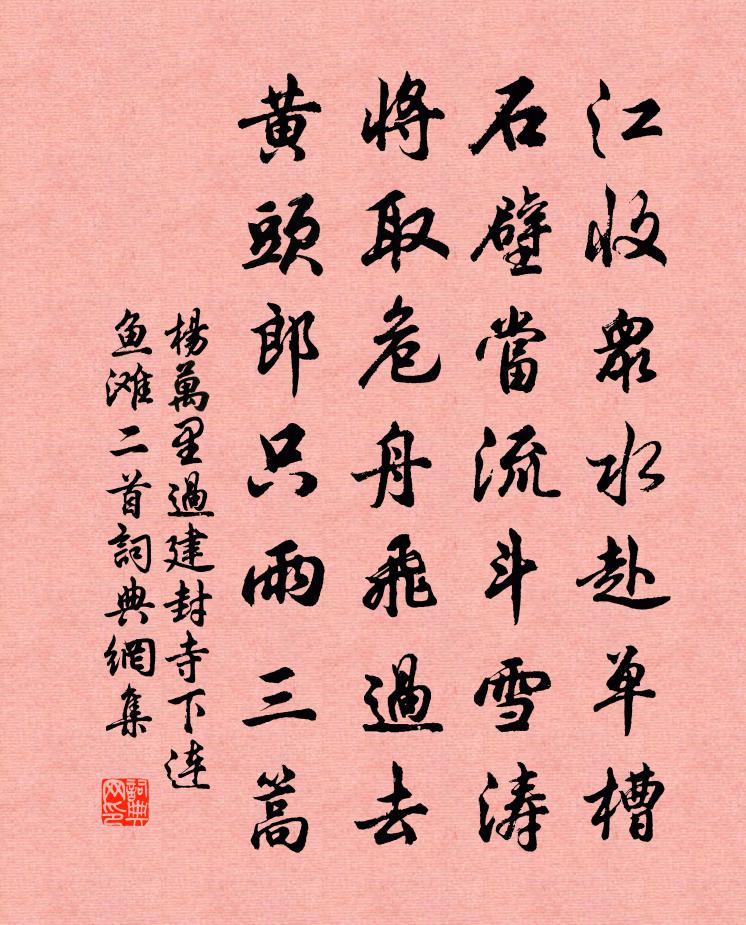 江收衆水赴单槽
石壁當流斗雪涛
將取危舟飛過去
黄頭郎只兩三篙
楊萬里過建封寺下连
鱼滩二首詞典網集
詞典
网印